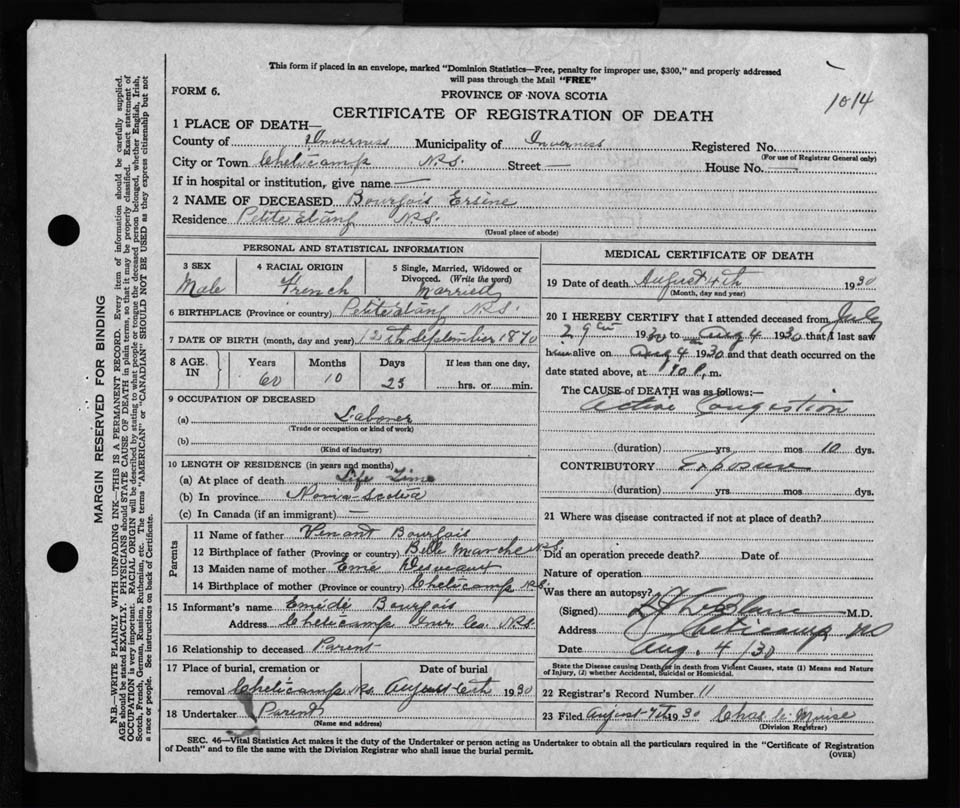 This form if placed in an envelope, marked "Dominion Statistics—Free, penalty for improper use, $300," and properly addressed
will pass through the Mail "FREE"
FORM 6.
PROVINCE OF NOVA SCOTIA
1014
CERTIFICATE OF REGISTRATION OF DEATH
1 PLACE OF DEATH—
County of Inverness Municipality of Inverness Registered No.
(For use of Registrar General only)
City or Town Cheticamp N.S. Street — House No. —
If in hospital or institution, give name —
2 NAME OF DECEASED Bourgois Ersine
Residence Petite etang N.S.
(Usual place of abode)
PERSONAL AND STATISTICAL INFORMATION
3 SEX Male
4 RACIAL ORIGIN French
5 Single, Married, Widowed or Divorced. (Write the word) Married
6 BIRTHPLACE (Province or country) Petite etang N.S.
7 DATE OF BIRTH (month, day and year) 12th September 1870
8 AGE IN Years 60 Months 10 Days 23 If less than one day, hrs. or min.
9 OCCUPATION OF DECEASED
(a) Laborer
(Trade or occupation or kind of work)
(b)
(Kind of industry)
10 LENGTH OF RESIDENCE (in years and months)
(a) At place of death Life Time
(b) In province Nova-Scotia
(c) In Canada (if an immigrant) —
Parents
11 Name of father Venant Bourgois
12 Birthplace of father (Province or country) Belle Marche N.S.
13 Maiden name of mother Eme Desveaux
14 Birthplace of mother (Province or country) Cheticamp N.S.
15 Informant's name Emidé Bourgois
Address Cheticamp Inver Co. N.S.
16 Relationship to deceased Parent
17 Place of burial, cremation or removal Cheticamp N.S. Date of burial August 6th 1930
18 Undertaker Parents
(Name and address)
MEDICAL CERTIFICATE OF DEATH
19 Date of death August 4th 1930
(Month, day and year)
20 I HEREBY CERTIFY that I attended deceased from July
29th 1930 to Aug 4 1930 that I last saw
him alive on Aug 4 1930 and that death occurred on the
date stated above, at 10 P.m.
The CAUSE of DEATH was as follows:—
Active Congestion
(duration) yrs mos 10 dys.
CONTRIBUTORY Exposure
(duration) yrs mos dys.
21 Where was disease contracted if not at place of death?
Did an operation precede death? Date of
Nature of operation
Was there an autopsy?
(Signed) LeBlanc M.D.
Address Cheticamp NS
Date Aug. 4/30
State the Disease causing Death, or in death from Violent Causes, state (1) Means and Nature
of Injury, (2) whether Accidental, Suicidal or Homicidal.
22 Registrar's Record Number 11
23 Filed August 7th 1930 Chas W. Muise
(Division Registrar)
SEC. 46—Vital Statistics Act makes it the duty of the Undertaker or person acting as Undertaker to obtain all the particulars required in the "Certificate of Registration
of Death" and to file the same with the Division Registrar who shall issue the burial permit.
(OVER)
MARGIN RESERVED FOR BINDING
N.B.—WRITE PLAINLY WITH UNFADING INK—THIS IS A PERMANENT RECORD. Every item of information should be carefully supplied.
AGE should be stated EXACTLY. PHYSICIANS should STATE CAUSE OF DEATH in plain terms, so that it may be properly classified. Exact statement of
OCCUPATION is very important. RACIAL ORIGIN will be described by stating to what people or tongue the deceased person belonged, whether English, Irish,
Scotch, French, German, Russian, Ruthenian, etc. The terms "AMERICAN" or "CANADIAN" SHOULD NOT BE USED as they express citizenship but not
a race or people. See instructions on back of Certificate.